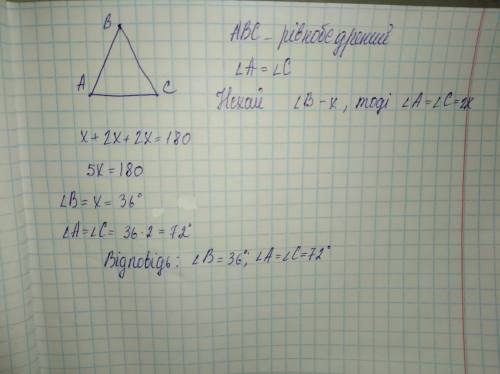 B
ABC - рівнобедрений
∠A = ∠C
A C
Нехай ∠B - x, тоді ∠A = ∠C = 2x
x + 2x + 2x = 180
5x = 180
∠B = x = 36°
∠A = ∠C = 36 · 2 = 72°
Відповідь: ∠B = 36°; ∠A = ∠C = 72°